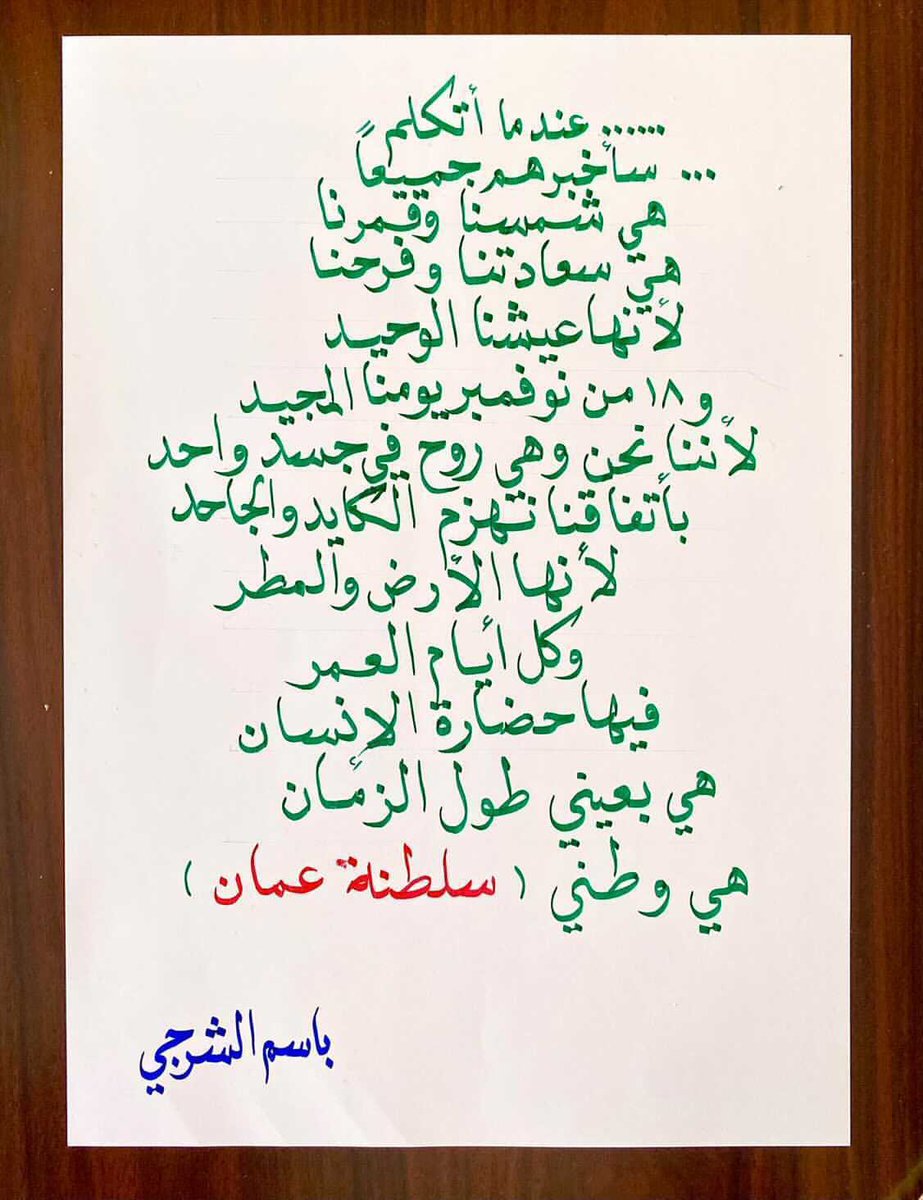 ...... عندما أتكلم
... سأخبرهم جميعاً
هي شمسنا وقمرنا
هي سعادتنا وفرحنا
لأنها عيشنا الوحيد
و ١٨ من نوفمبر يومنا المجيد
لأننا نحن وهي روح في جسد واحد
بأتفاقنا تهزم الكايد والجاحد
لأنها الأرض والمطر
وكل أيام العمر
فيها حضارة الإنسان
هي بعيني طول الزمان
هي وطني ( سلطنة عمان )
باسم الشرجي